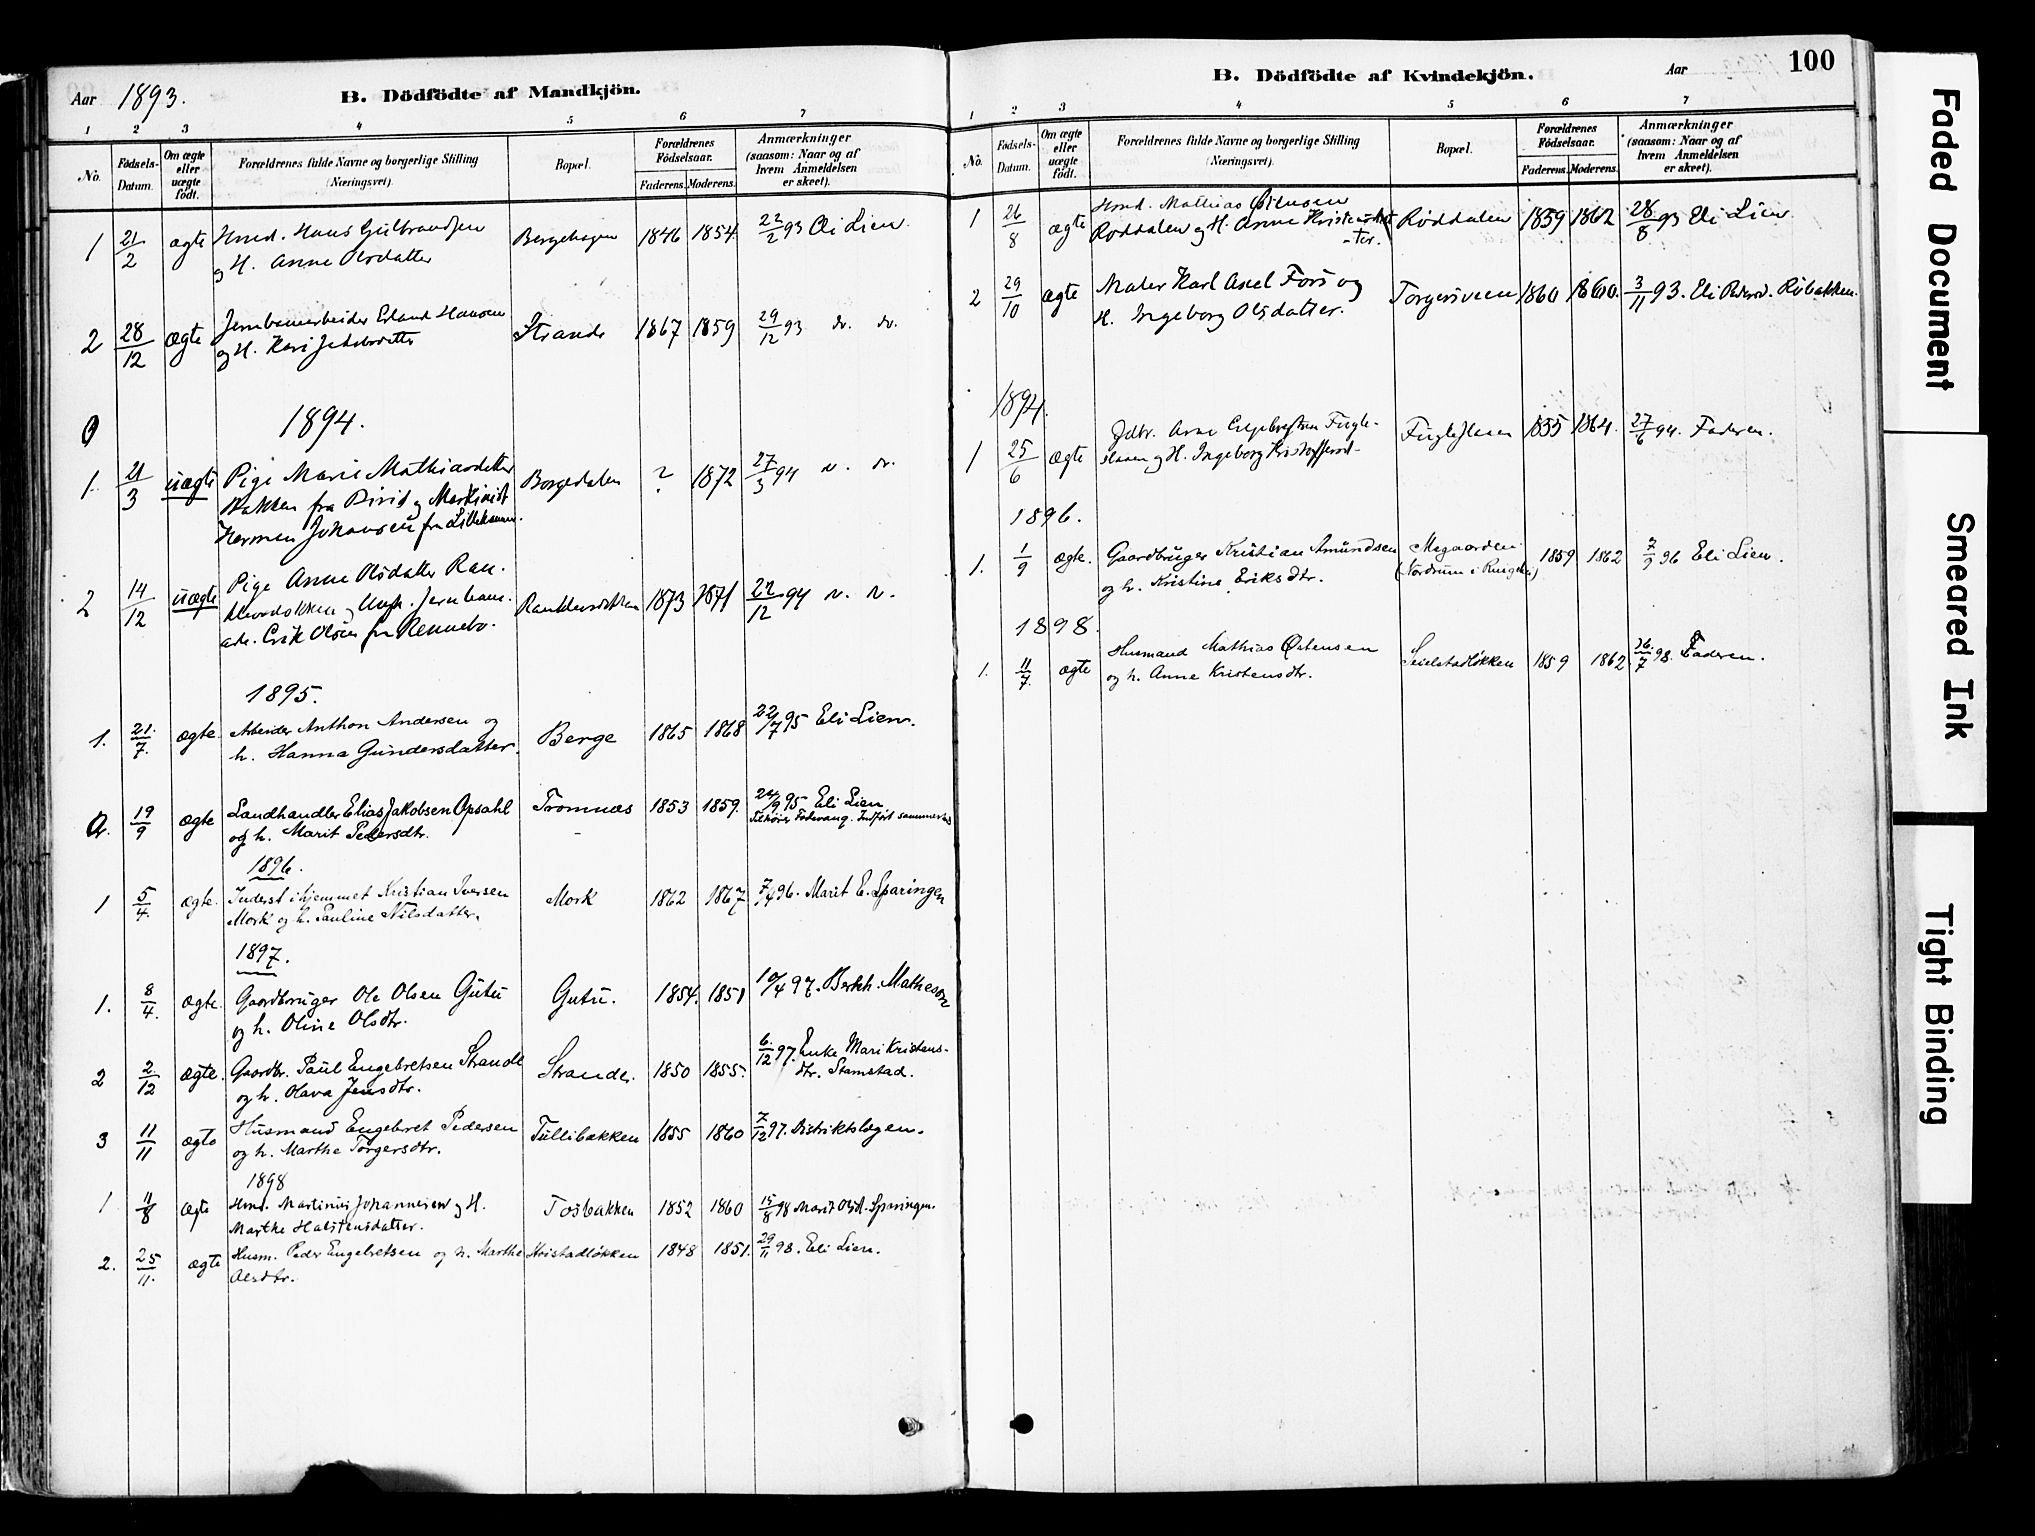 Aar 1893.
B. Dödfödte af Mandkjön.
1 2 3 4 5 6 7
No. Fødsels-Datum. Om ægte eller uægte født. Forældrenes fulde Navne og borgerlige Stilling (Næringsvei). Bopæl. Forældrenes Fødselsaar. Faderens. Moderens. Anmærkninger (saasom: Naar og af hvem Anmeldelsen er skeet).
1 21/2 ægte Hmd. Hans Gulbrandsen Bergehagen 1846 1854 22/2 93 Eli Lien.
og H. Anne Olsdatter
2 28/12 ægte Jernbanearbeider Erland Hansen Strande 1867 1859 29/12 93 do. do.
og H. Kari
1894.
1 21/3 uægte Pige Marie Mathiasdatter Borgedalen ? 1872 27/3 94
Bakken fra Birid og
Herman Johansen fra Lillehamm.
2 14/12 uægte Pige Anne Olsdatter Ran- 1873 1871 22/12 94
og Ungk. Jernban.
arb. Erik Olsen fra Rennebo.
1895.
1. 21/7. ægte Arbeider Anthon Andersen og Berge 1865 1868 22/7 95 Eli Lien.
h. Hanna Gundersdatter.
19/9 ægte Landhandler Elias Jakobsen Opsahl Tromnæs 1853 1859. 24/9 95 Eli Lien
og h. Marit Pedersdtr. Tilhører Fodvang. Indført sammesteds
1896.
1 5/4. ægte. Inderst i hjemmet Kristian Iversen Mork 1862 1867 7/4 96. Marit E. Sparingen
Mork og h. Pauline Nilsdatter.
1897.
1. 8/4. ægte. Gaardbruger Ole Olsen Gutu Gutu. 1854. 1851 10/4 97. Berth. Matheson
og h. Oline Olsdtr.
2 2/12 ægte. Gaardbr. Paul Engebretsen Strande Strande. 1850 1855. 6/12 97. Enke Mari Kristens-
og h. Olava Jensdtr. dtr. Stamstad.
3 11/11 ægte Husmand Engebret Pedersen Tullibakken 1855 1860 7/12 97. Distriktslægen.
og h. Marthe Torgersdtr.
1898
1 11/8 ægte Hmd. Martinus Johannesen og H. Tosbakken 1852 1860 15/8 98 Marit Olsd. Sparingen.
Marthe Halstensdatter.
2. 25/11. ægte Husm. Peder Engebretsen og h. Marthe Hvistadløkken 1848 1851. 29/11 98. Eli Lien.
Olsdtr.
B. Dödfödte af Kvindekjön.
Aar
100
1 2 3 4 5 6 7
No. Fødsels-Datum. Om ægte eller uægte født. Forældrenes fulde Navne og borgerlige Stilling (Næringsvei). Bopæl. Forældrenes Fødselsaar. Faderens. Moderens. Anmærkninger (saasom: Naar og af hvem Anmeldelsen er skeet).
1 26/8 ægte Hmd. Mathias Østensen Røddalen 1859 1862 28/8 93 Eli Lien.
Røddalen og H. Anne Kristensdat-
-ter.
2 29/10 ægte Maler Karl Axel Fors og Torgersveen 1860 1860. 3/11 93. Eli Pedersd. Robakken.
H. Ingeborg Olsdatter.
1894.
1 25/6 ægte Jdbr. Arne Engebretsen Fugle- Fugleslaaen 1855 1864. 27/6 94. Faderen.
slaaen og H. Ingeborg Kristoffersd-
1896.
1. 1/9 ægte. Gaardbruger Kristian Amundsen Megaarden 1859 1862 7/9 96 Eli Lien.
og h. Kristine Eriksdtr. (Nordrum i Ringebu)
1898.
1. 11/7. ægte Husmand Mathias Østensen Seielstadløkken 1859 1862 16/7 98. Faderen.
og h. Anne Kristensdtr.
Faded Document
Smeared Ink
Tight Binding